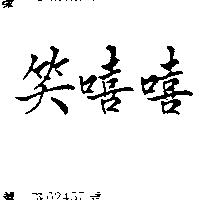 笑嘻嘻